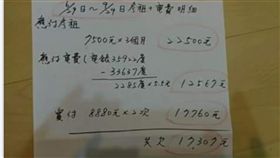 /29日～9/29日房租+電費明細
應付房租
7500元×3個月 22500元
應付電費(電錶35922度
-33637度
2285度×5.5元 12567元
實付 8880元×2次 17760元
共欠 17,307元